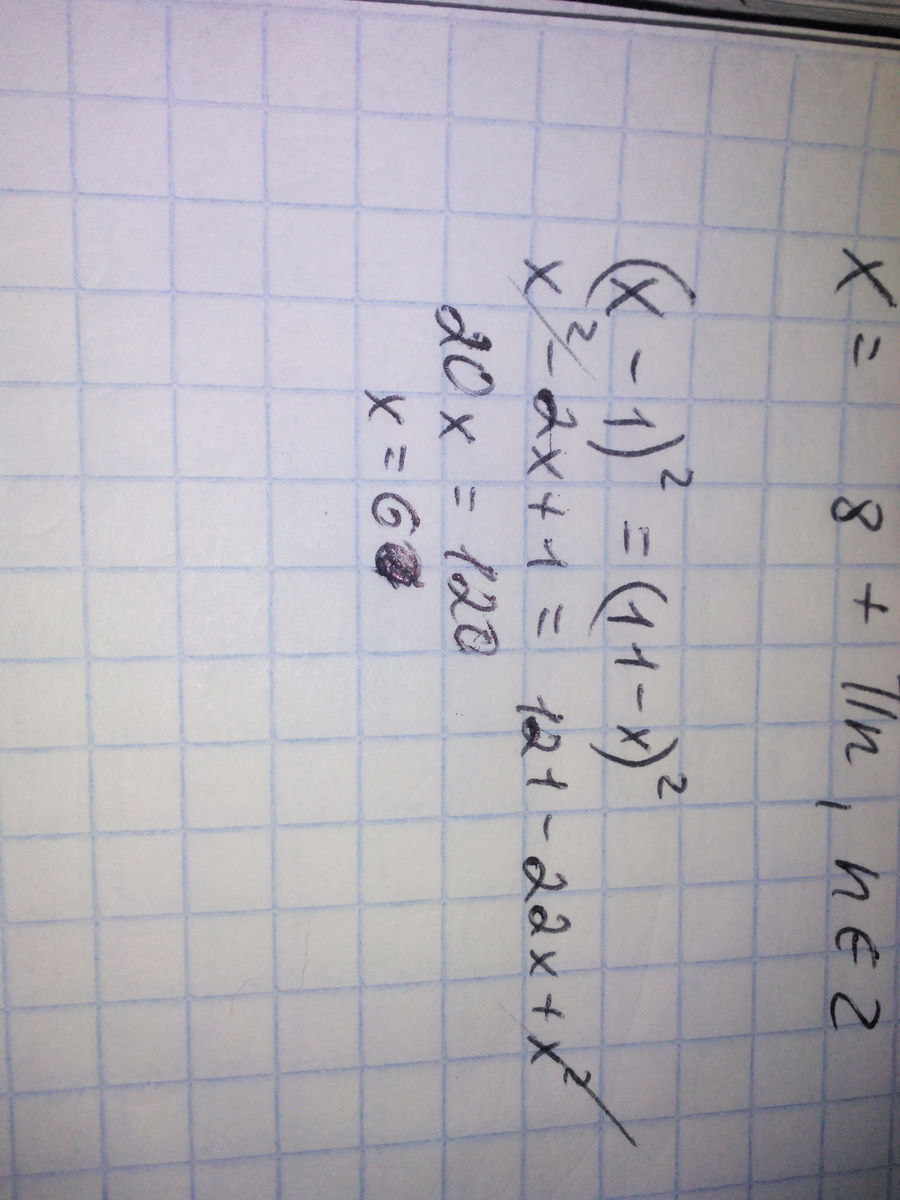 x = 8 + πn, n ∈ Z
(x - 1)² = (11 - x)²
x² - 2x + 1 = 121 - 22x + x²
20x = 120
x = 6